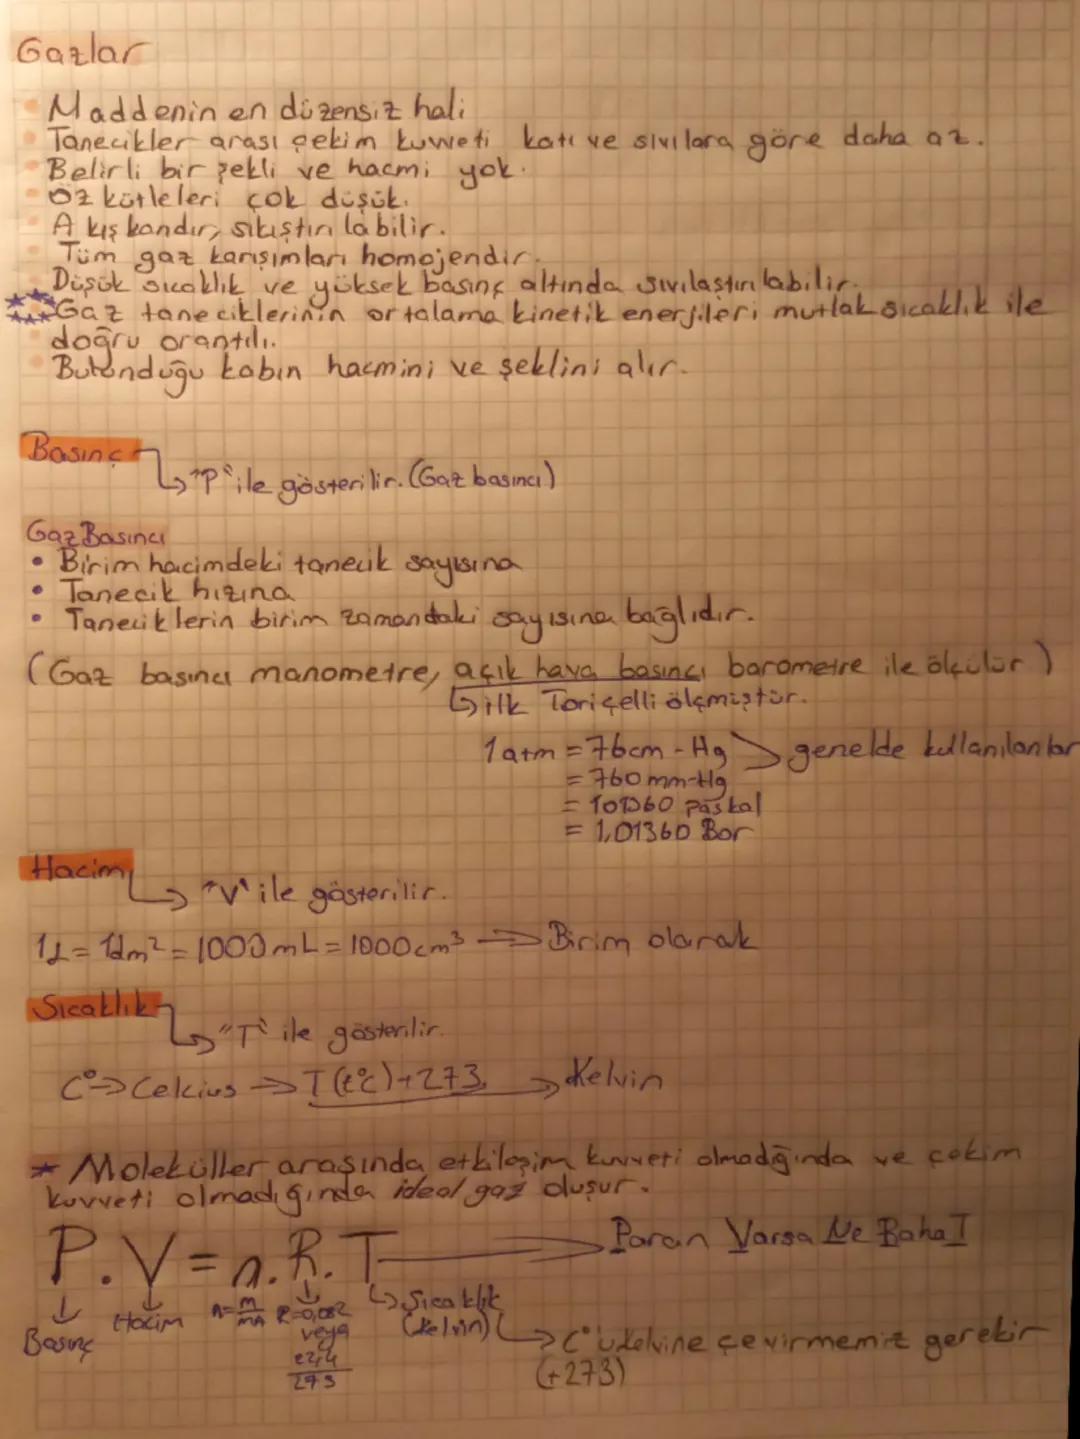 Gazlar
Maddenin en düzensiz hali
Tanecikler arası çekim kuvveti katı ve sıvılara göre daha az.
Belirli bir şekli ve hacmi yok.
Öz kütleleri çok düşük.
Akışkandır, sıkıştırılabilir.
Tüm gaz karışımları homojendir.
Düşük sıcaklık ve yüksek basınç altında sıvılaştırılabilir.
Gaz taneciklerinin ortalama kinetik enerjileri mutlak sıcaklık ile
doğru orantılı.
Bulunduğu kabın hacmini ve şeklini alır.
Basınç
"P" ile gösterilir. (Gaz basıncı)
Gaz Basıncı
• Birim hacimdeki tanecik sayısına
• Tanecik hızına
• Taneciklerin birim zamandaki sayısına bağlıdır.
(Gaz basıncı manometre, açık hava basıncı barometre ile ölçülür)
↳ ilk Toriçelli ölçmüştür.
1 atm = 76cm - Hg > genelde kullanılanlar
= 760 mm-Hg
= 101360 paskal
= 1,01360 Bar
Hacim
↳ "V" ile gösterilir.
1L = 1dm² = 1000 mL = 1000cm³ → Birim olarak
Sıcaklık
↳ "T" ile gösterilir.
C° → Celcius → T(t°c)+273 → Kelvin
* Moleküller arasında etkileşim kuvveti olmadığında ve çekim
kuvveti olmadığında ideal gaz oluşur.
P.V = n.R.T → Paran Varsa Ne Rahat
Basınç
Hacim
n=m/MA
R=0,082
veya
22,4/273
↳ Sıcaklık
(Kelvin)
↳ C°'u kelvine çevirmemiz gerekir
(+273)